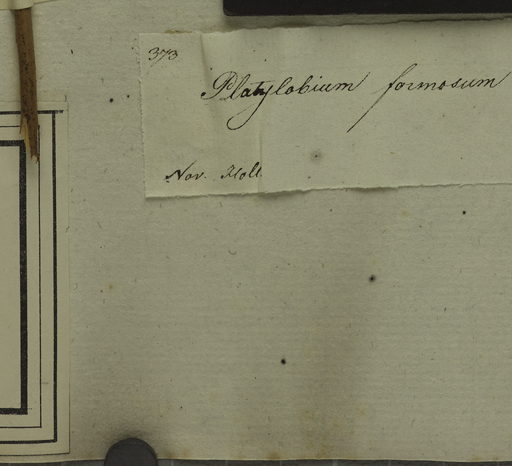 373
Platylobium formosum
Nov. Holl.